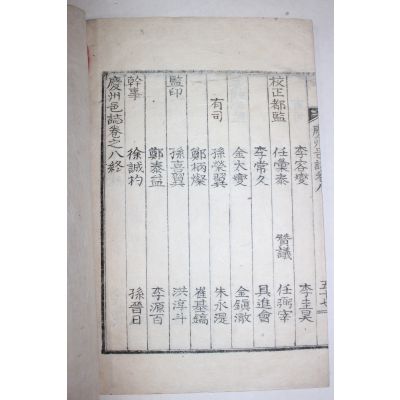 慶州邑誌卷八
李容夔 李圭昊
校正都監 任彙泰 贊議 任弼宰
李常久 具進會
金大夔 金鎭澈
有司 孫榮翼 朱永湜
鄭柄燦 崔基鎬
監印 孫喜翼 洪淳斗
鄭泰益 李源百
幹事 徐誠杓 孫晉日
慶州邑誌卷之八終